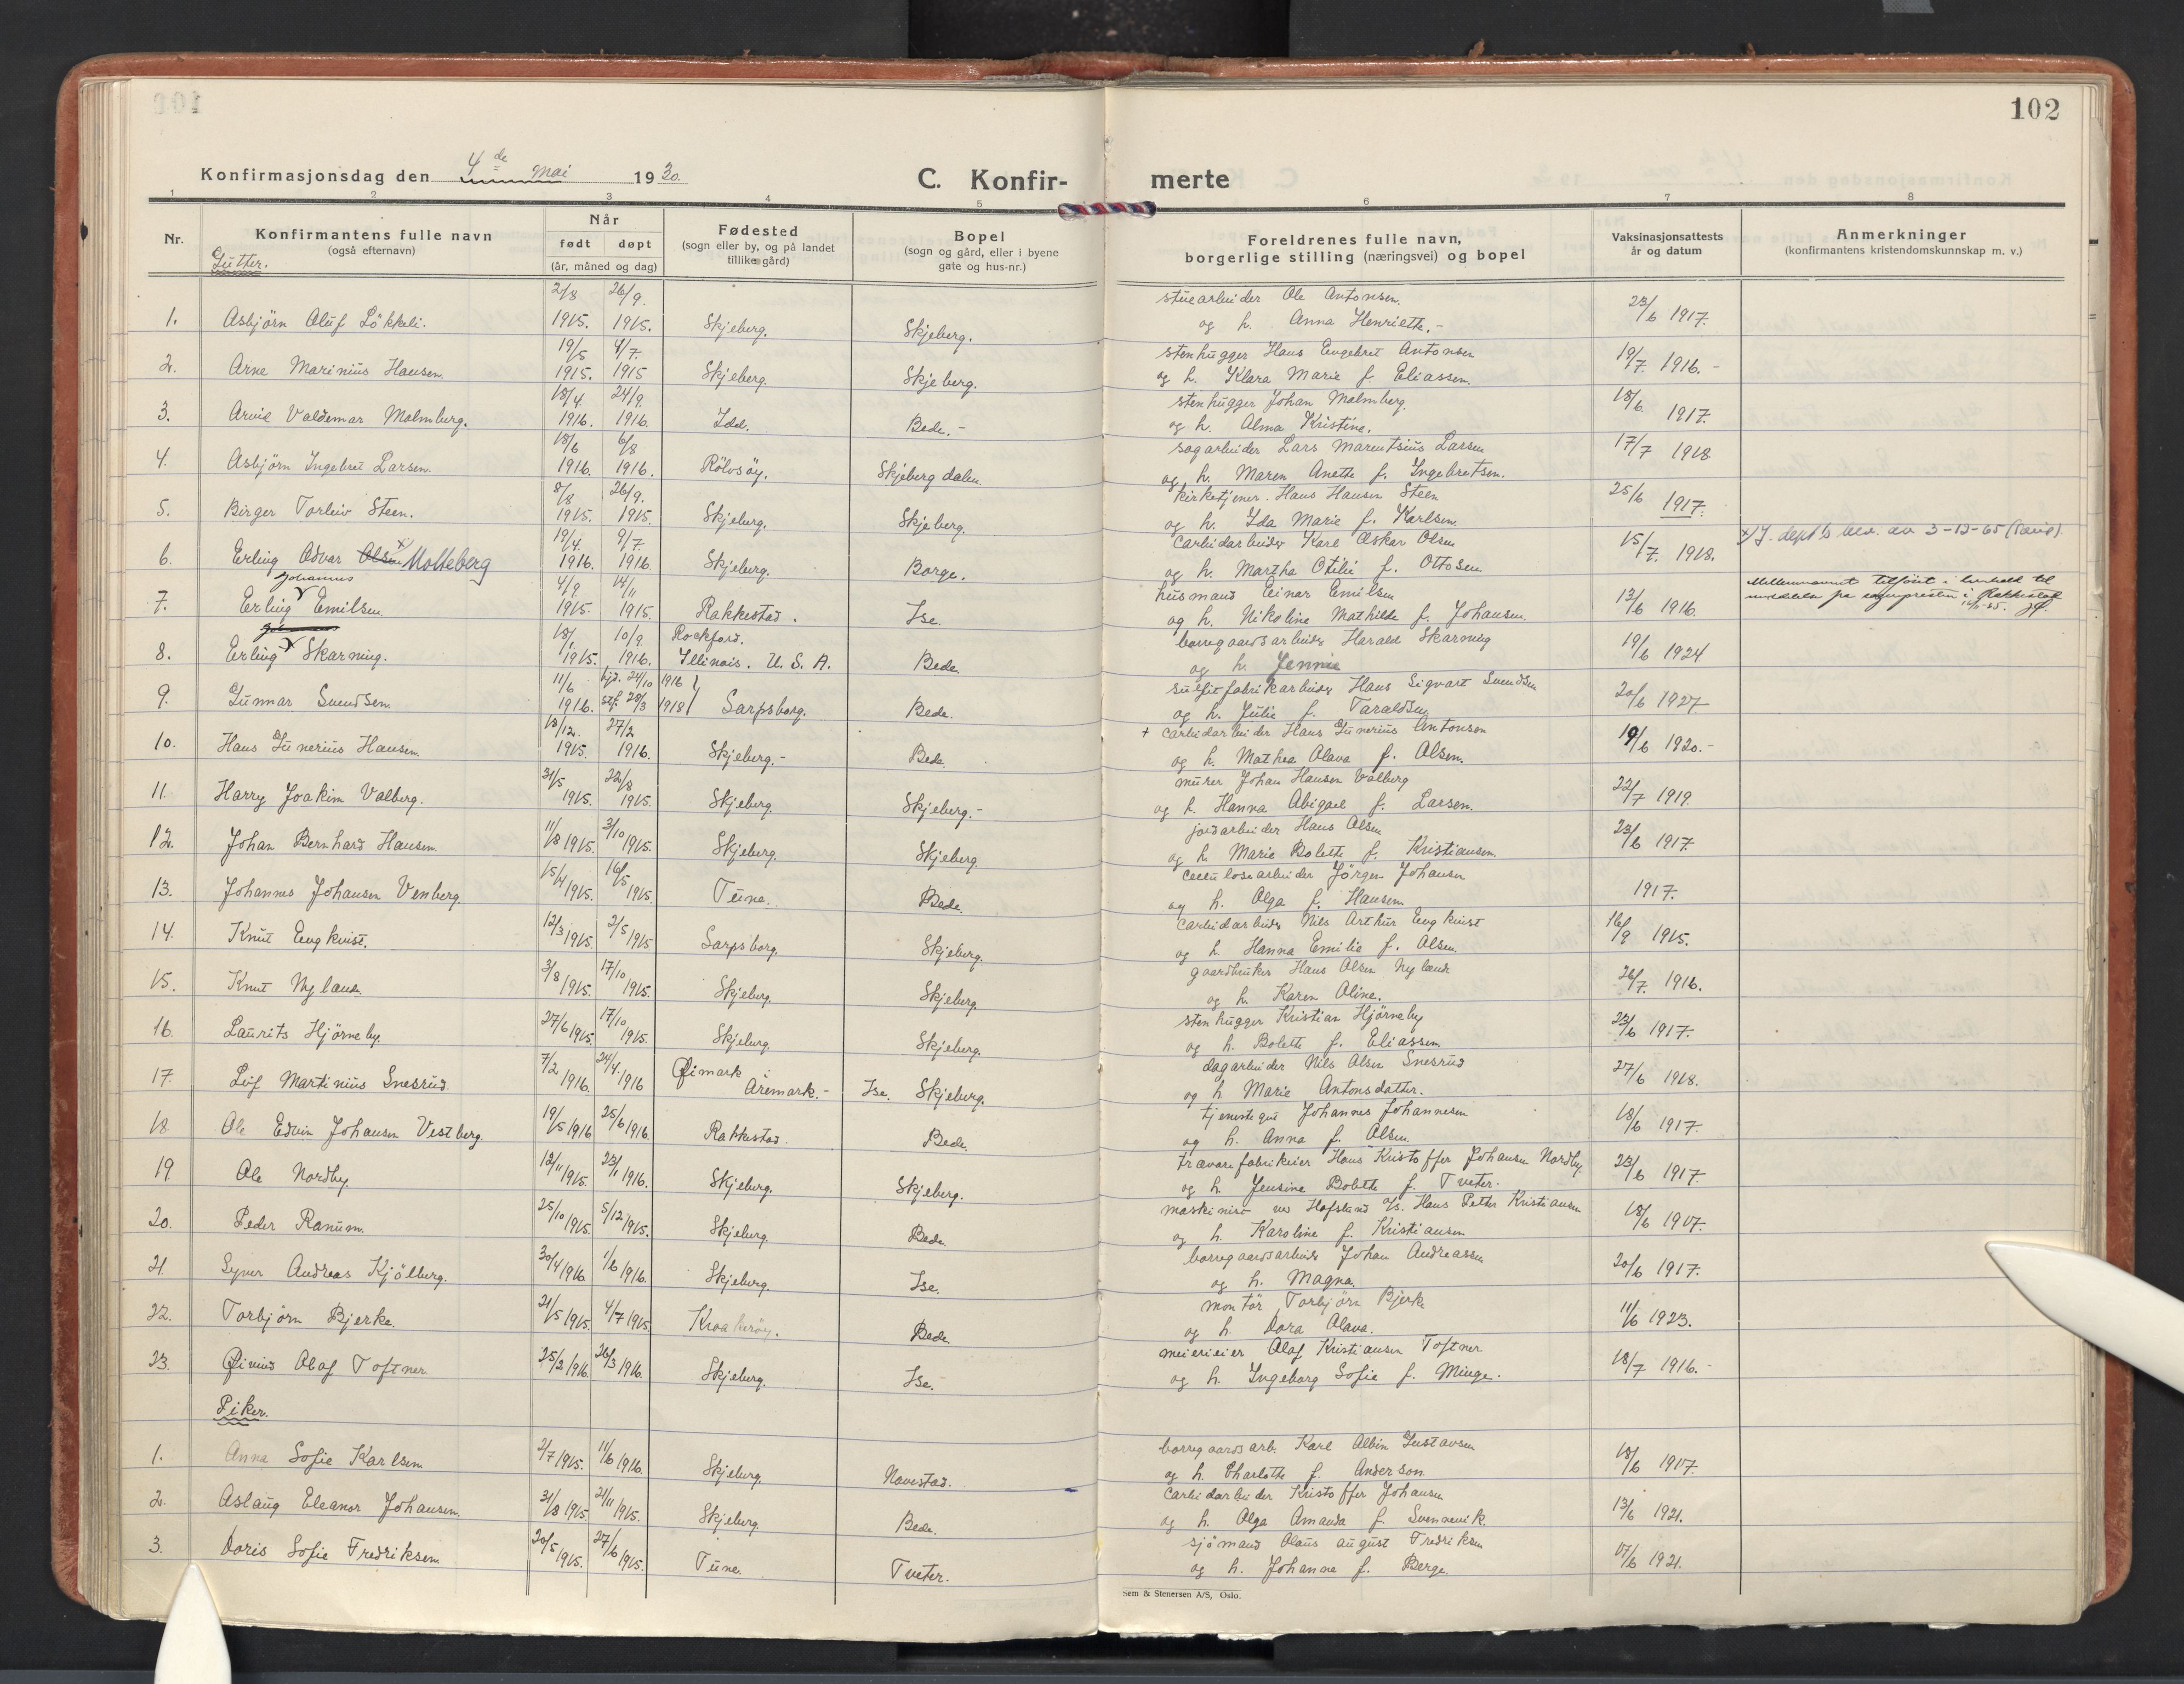 102
Konfirmasjonsdag den 4de mai 1930.
C. Konfir- merte
1 2 3 4 5 6 7 8
Nr.
Konfirmantens fulle navn
(også efternavn)
Gutter.
Når
født døpt
(år, måned og dag)
Fødested
(sogn eller by, og på landet
tillike gård)
Bopel
(sogn og gård, eller i byene
gate og hus-nr.)
Foreldrenes fulle navn,
borgerlige stilling (næringsvei) og bopel
Vaksinasjonsattests
år og datum
Anmerkninger
(konfirmantens kristendomskunnskap m. v.)
2/8 26/9. stuearbeider Ole Antonsen.
1. Asbjörn Oluf Lökkeli. 1915. 1915. Skjeberg. Skjeberg. og h. Anna Henriette.- 23/6 1917.
19/5 4/7. stenhugger Hans Engebret Antonsen
2. Arne Marinius Hansen. 1915. 1915 Skjeberg. Skjeberg. og h. Klara Marie f. Eliassen. 19/7. 1916.-
18/4. 24/9. stenhugger Johan Malmberg.
3. Arvid Valdemar Malmberg. 1916. 1916. Idd. Bede.- og h. Alma Kristine. 18/6. 1917.
18/6 6/8 sagarbeider Lars Marentsius Larsen
4. Asbjörn Ingebret Larsen. 1916. 1916. Rölvsöy. Skjebergdalen. og h. Maren Anette f. Ingebretsen. 17/7 1918
8/8 26/9. kirketjener Hans Hansen Steen
5. Birger Torleiv Steen. 1915. 1915. Skjeberg. Skjeberg. og h. Ida Marie f. Karlsen. 25/6 1917.
19/4. 9/7. carbidarbeider Karl Oskar Olsen
6. Erling Odvar Olsen x Molteberg 1916. 1916 Skjeberg. Borge. og h. Martha Otilie f. Ottosen. 15/7. 1918. x/J. dept's bev. av 3-12-65
Johannes 4/9 14/11 husmand Einar Emilsen
7. Erling Emilsen 1915. 1915 Rakkestad. Ise. og h. Nikoline Mathilde f. Johansen. 13/6 1916. Mellemnavnet tilföiet i henhold til
meddelelse fra sognepresten i Rakkestad
18/1 10/9 Rockford. borregaardsarbeider Harald Skarning
8. Erling Skarning. 1915. 1916. Illinois. U. S. A. Bede. og h. Jennie 19/6 1924
11/6 hjd. 24/10 1916 sulfitfabrikarbeider Hans Sigvart Svendsen
9. Gunnar Svendsen. 1916. stf. 28/3 1918 Sarpsborg. Bede. og h. Julie f. Taraldsen 20/6 1927
18/12. 27/2 + carbidarbeider Hans Gunerius Antonsen
10. Hans Gunerius Hansen. 1915. 1916. Skjeberg.- Bede. og h. Mathea Olava f. Olsen. 19/6 1920.-
31/5 22/8 murer Johan Hansen Valberg
11. Harry Joakim Valberg. 1915. 1915. Skjeberg. Skjeberg.- og h. Hanna Abigael f. Larsen. 22/7 1919.
jordarbeider Hans Olsen
12. Johan Bernhard Hansen. 11/8 1915. 3/10 1915. Skjeberg. Skjeberg. og h. Marie Bolette f. Kristiansen. 23/6 1917.
cellulosearbeider Jörgen Johansen
13. Johannes Johansen Venberg. 15/4 1915. 16/5 1915. Tune. Bede. og h. Olga f. Hansen 1917.
carbidarbeider Nils Arthur Engkvist
14. Knut Engkvist. 12/3 1915. 2/5 1915 Sarpsborg. Skjeberg. og h. Hanna Emilie f. Olsen. 16/9 1915.
gaardbruker Hans Olsen Nyland
15. Knut Nyland. 3/8 1915. 17/10 1915. Skjeberg. Skjeberg. og h. Karen Oline. 26/7. 1916.
stenhugger Kristian Hjörneby
16. Laurits Hjörneby. 27/6 1915. 17/10 1915. Skjeberg. Skjeberg. og h. Bolette f. Eliassen. 23/6 1917.
dagarbeider Nils Olsen Snesrud
17. Leif Martinius Snesrud. 7/2 1916. 24/4. 1916 Öimark i Aremark.- Ise. Skjeberg. og h. Marie Antonsdatter. 27/6 1918.
tjenestegut Johannes Johannesen
18. Ole Edvin Johansen Vestberg. 19/5 1916 25/6 1916. Rakkestad. Bede. og h. Anna f. Olsen. 18/6 1917.
trævarefabrikeier Hans Kristoffer Johansen Nordby.
19. Ole Nordby. 12/11 1915. 23/1 1916. Skjeberg. Skjeberg. og h. Jensine Bolette f. Tveter. 23/6 1917.
maskinist ved Hafslund A/s. Hans Petter Kristiansen
20. Peder Ranum. 25/10 1915. 5/12 1915. Skjeberg. Bede. og h. Karoline f. Kristiansen 18/6 1917.
borregaardsarbeider Johan Andreassen
21. Syver Andreas Kjölberg. 30/4 1916. 1/6 1916. Skjeberg. Ise. og h. Magna. 20/6 1917.
montör Torbjörn Bjerke
22. Torbjörn Bjerke. 21/5 1915. 4/7 1915. Kraakeröy. Bede. og h. Dora Olava. 11/6 1923.
meierieier Olaf Kristiansen Toftner
23. Öivind Olaf Toftner. 25/2 1916. 26/3 1916. Skjeberg. Ise. og h. Ingeborg Sofie f. Minge. 18/7 1916.-
Piker.
borregaardsarb. Karl Albin Gustavsen
1. Anna Sofie Karlsen. 2/7 1915. 11/6 1916. Skjeberg. Navestad. og h. Charlotte f. Anderson. 18/6 1917.
carbidarbeider Kristoffer Johansen
2. Aslaug Eleanor Johansen. 31/8 1915. 21/11 1915. Skjeberg. Bede. og h. Olga Amanda f. Svennevik. 13/6 1921.
sjömand Olaus August Fredriksen
3. Doris Sofie Fredriksen 20/5 1915. 27/6 1915. Tune. Tveter. og h. Johanne f. Berge. 17/6 1921.
Sem & Stenersen A/S, Oslo.